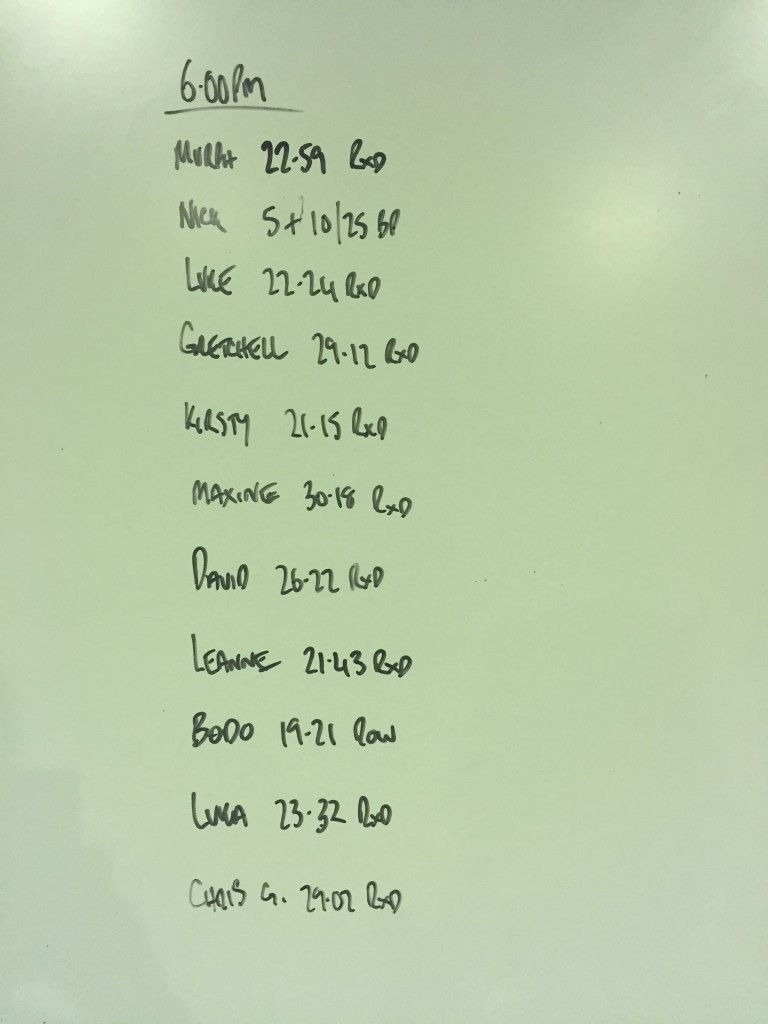 6.00Pm
MURAT 22.59 RxD
NICK 5+10/25 BP
LUKE 22.24 RxD
GRETCHELL 29.12 RxD
KIRSTY 21.15 RxD
MAXINE 30.18 RxD
DAVID 26.22 RxD
LEANNE 21.43 RxD
BODO 19.21 ROW
LUKA 23.32 RxD
CHRIS G. 29.02 RxD